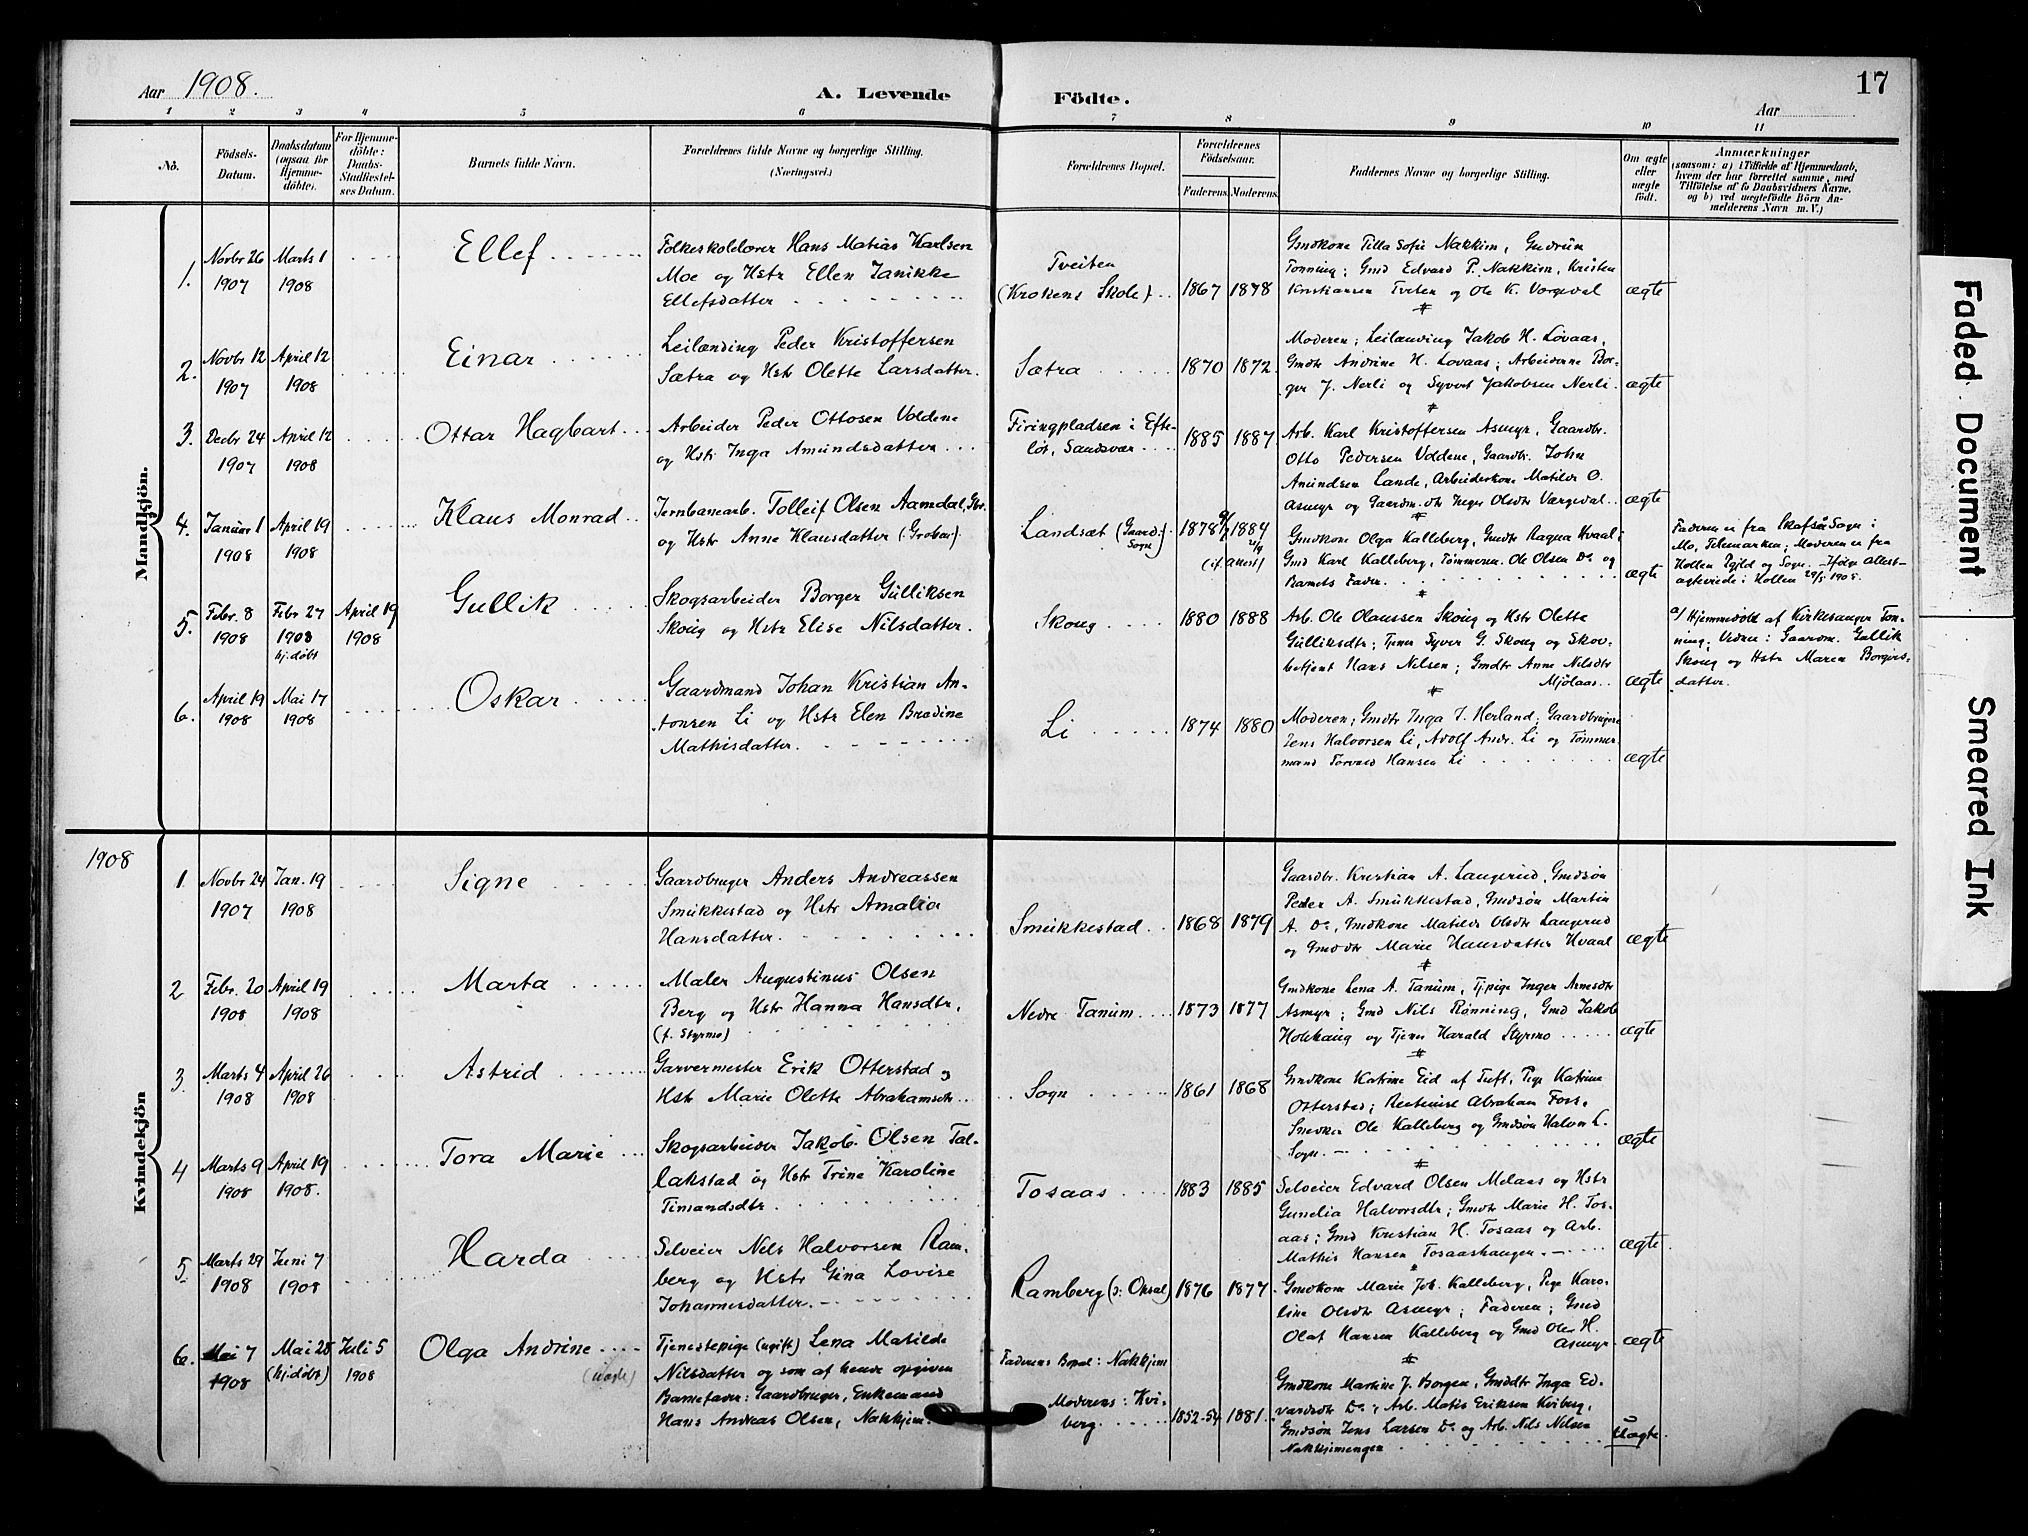 Aar 1908.
A. Levende Födte.
17
Aar
1 2 3 4 5 6 7 8 9 10 11
No.
Födsels-Datum.
Daabsdatum (ogsaa for Hjemmedöbte).
For Hjemmedöbte: Daabs-Stadfæstelses Datum.
Barnets fulde Navn.
Forældrenes fulde Navne og borgerlige Stilling. (Næringsvei.)
Forældrenes Bopæl.
Forældrenes Födselsaar.
Faderens. Moderens.
Faddernes Navne og borgerlige Stilling.
Om ægte eller uægte födt.
Anmærkninger
(saasom: a) i Tilfælde af Hjemmedaab,
hvem der har forrettet samme, med
Tilföielse af to Daabsvidners Navne,
og b) ved uægtefödte Börn An-
melderens Navn m. V.)
Mandkjön.
1. Novbr 26 1907
Marts 1 1908
Ellef
Folkeskolelærer Hans Matias Karlsen
Moe og Hstr Ellen Janikke
Ellefsdatter
Tveiten
(Krokens Skole)
1867 1878
Gmdkone Tilla Sofie Nakkim, Gudrun
Tonning; Gmd Edvard P. Nakkim, Kristen
Kristiansen Tveten og Ole K. Værgeval
ægte
2. Novbr 12 1907
April 12 1908
Einar
Leilænding Peder Kristoffersen
Sætra og Hstr Olette Larsdatter.
Sætra
1870 1872
Moderen; Leilænding Jakob H. Lovaas,
Gmdtr Andrine H. Lovaas; Arbeiderne Bor-
ger J. Nerli og Syvert Jakobsen Nerli
ægte
3. Decbr 24 1907
April 12 1908
Ottar Hagbart
Arbeider Peder Ottosen Voldene
og Hstr Inga Amundsdatter
Firingpladsen i Efte-
löt, Sandsvær
1885 1887
Arb. Karl Kristoffersen Asmyr, Gaardbr.
Otto Pedersen Voldene, Gaardbr. John
Amundsen Lande, Arbeiderkone Matilde O.
Asmyr og Gaardm.dtr Inger Olsdtr Værgeval
ægte
4. Januar 1 1908
April 19 1908
Klaus Monrad
Jernbanearb. Tolleif Olsen Aamdal, Gbr.
og Hstr Anne Klausdatter (Groben)
Landsæt (Gaard: Sogn)
1878 1884
(if. Attest)
Gmdkone Olga Kalleberg, Gmdtr Ragna Hvaal;
Gmd Karl Kalleberg, Tømmerm. Ole Olsen Do og
Barnets Fader.
ægte
Faderen er fra Skafså Sogn i
Mo, Telemarken; Moderen er fra
Hollen Pgjld og Sogn. Ifølge Attest
ægteviede i Hollen
5. Febr. 8 1908
Febr 27 1908 hj.døbt
April 19 1908
Gullik
Skogsarbeider Borger Gulliksen
Skoug og Hstr Elise Nilsdatter.
Skoug
1880 1888
Arb. Ole Olaussen Skoug og Hstr Olette
Gulliksdtr; Tjener Syver G. Skoug og Skov-
betjent Hans Nilsen; Gmdtr Anne Nilsdtr
Mjölaas
ægte
a/ Hjemmedöbt af Kirkesanger Ton-
ning; Vidner: Gaardm. Gullik
Skoug og Hstr Maren Borgers-
datter.
6. April 19 1908
Mai 17 1908
Oskar
Gaardmand Johan Kristian An-
tonsen Li og Hstr Elen Bredine
Mathisdatter.
Li
1874 1880
Moderen; Gmdtr Inga J. Herland; Gaardbrugere
Jens Halvorsen Li, Adolf Andr. Li og Tømmer-
mand Torvald Hansen Li
ægte
1908
Kvindekjön
1. Novbr 24 1907
Jan. 19 1908
Signe
Gaardbruger Anders Andreassen
Smukkestad og Hstr Amalia
Hansdatter.
Smukkestad
1868 1879
Gaardbr. Kristian A. Langerud, Gmdsøn
Peder A. Smukkestad, Gmdsøn Martin
A. Do, Gmdkone Matilde Olsdtr Langerud
og Gmddtr Marie Hansdatter Hvaal
ægte
2 Febr. 20 1908
April 19 1908
Marta
Maler Augustinus Olsen
Berg og Hstr Hanna Hansdtr,
(f. Styrmo)
Nedre Tanum
1873 1877
Gmdkone Lena A. Tanum, Tjpige Inger Arnesdtr
Asmyr; Gmd Nils Rønning, Gmd Jakob
Holehaug og Tjener Harald Styrmo
ægte
3 Marts 4 1908
April 26 1908
Astrid
Garvermester Erik Otterstad og
Hstr Marie Olette Abrahamsdtr
Sogn
1861 1868
Gmdkone Katrine Eid af Tuft, Pige Katrine
Otterstad; Abraham Foss,
Snedker Ole Kalleberg og Gmdsøn Halvor L.
Sogn.
ægte
4 Marts 9 1908
April 19 1908.
Tora Marie
Skogsarbeider Jakob Olsen Tal-
lakstad og Hstr Trine Karoline
Timandsdtr
Tosaas
1883 1885
Selveier Edvard Olsen Melaas og Hstr
Gunelia Halvorsdtr; Gmdtr Marie H. Tos-
aas; Gmd Kristian H. Tosaas og Arb.
Mathis Hansen Tosaashaugen.
ægte
5. Marts 29 1908
Juni 7 1908
Harda
Selveier Nels Halvorsen Ram-
berg og Hstr Gina Lovise
Johannesdatter.
Ramberg (i: Opsal)
1876 1877
Gmdkone Marie Joh. Kalleberg, Pige Karo-
line Olsdtr Asmyr; Faderen; Gmd
Olaf Hansen Kalleberg og Gmd Oler H.
Asmyr
ægte
6. Mai 7 1908
Mai 28 (hj.døbt)
Juli 5 1908
Olga Andrine
(uægte)
Tjenestepige (ugift) Lena Matilde
Nilsdatter og som af hende opgiven
Barnefader: Gaardbruger, Enkemand
Hans Andreas Olsen, Nakkjem.
Faderens Bopæl: Nakkjem
Moderens: Kvi-
berg
1852-54 1881
Gmdkone Martine J. Borgen, Gmddtr Inga Ed-
vardsdtr Do; Arb. Matis Eriksen Kviberg,
Gmdsøn Jens Larsen Do og Arb. Nils Nilsen
Nakkjemengen
Uægte
Faded Document
Smeared Ink